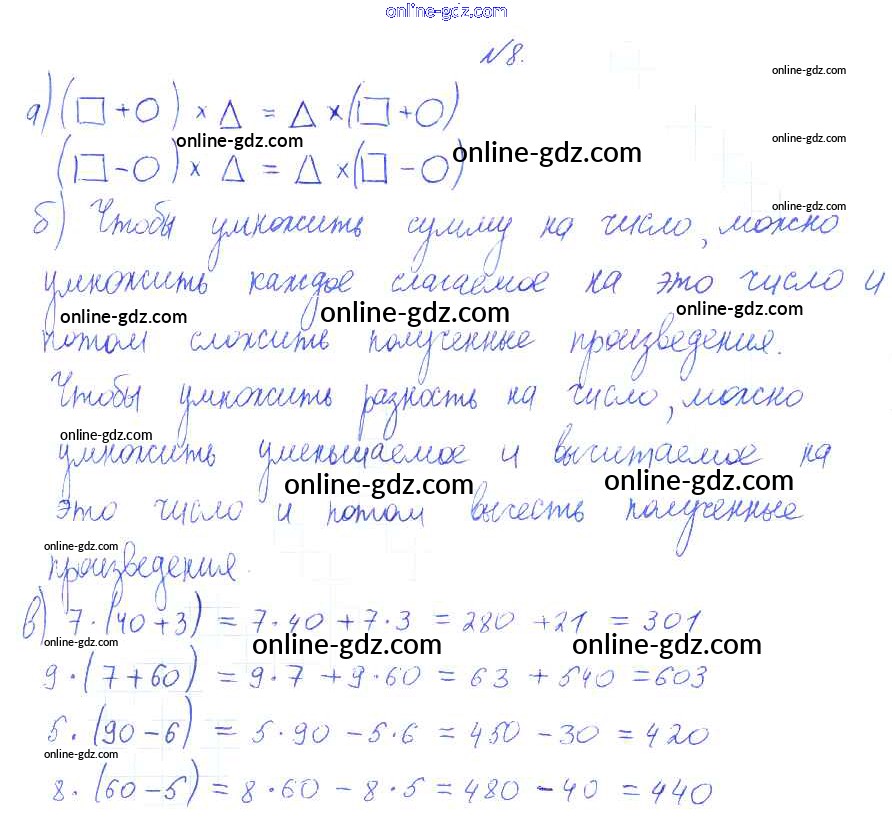 online-gdz.com
№8.
online-gdz.com
а) (□+○) × △ = △ ×(□+○)
online-gdz.com
online-gdz.com
online-gdz.com
(□-○) × △ = △ ×(□-○)
online-gdz.com
б) Чтобы умножить сумму на число, можно
умножить каждое слагаемое на это число и
online-gdz.com
online-gdz.com
online-gdz.com
потом сложить полученные произведения.
Чтобы умножить разность на число, можно
online-gdz.com
умножить уменьшаемое и вычитаемое на
online-gdz.com
online-gdz.com
это число и потом вычесть полученные
online-gdz.com
произведения.
в) 7·(40+3) = 7·40+7·3 = 280 +21 = 301
online-gdz.com
online-gdz.com
online-gdz.com
9·(7+60) = 9·7+9·60 = 63 + 540 = 603
5·(90-6) = 5·90-5·6 = 450 - 30 = 420
online-gdz.com
8·(60-5) = 8·60 - 8·5 = 480 - 40 = 440